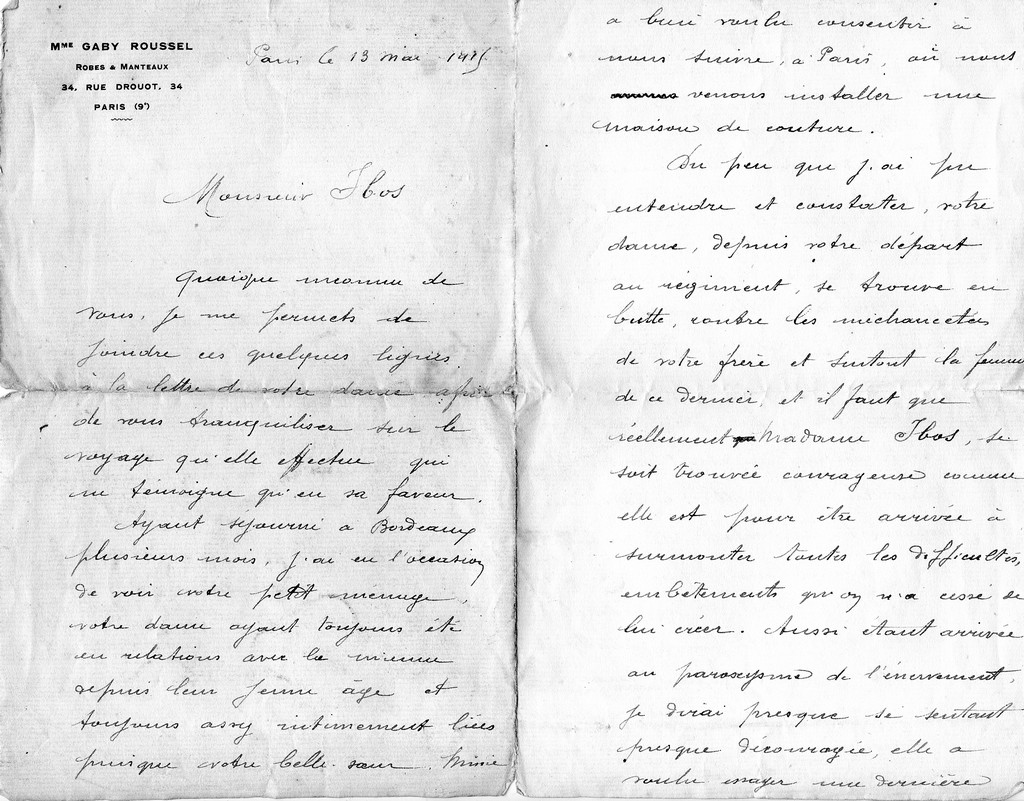 Mme GABY ROUSSEL
ROBES & MANTEAUX
34, RUE DROUOT, 34
PARIS (9e)
Paris le 13 Mai
Monsieur Ibos
Quoique inconnu de
vous, je me permets de
joindre ces quelques lignes
à la lettre de votre dame afin
de vous tranquiliser sur le
voyage qu'elle effectue qui
ne témoigne qu'en sa faveur.
Ayant séjourné à Bordeaux
plusieurs mois, j'ai eu l'occasion
de voir votre petit ménage,
votre dame ayant toujours été
en relations avec la mienne
depuis leur jeune âge et
toujours assez intimement liées
puisque votre belle-sœur
a bien voulu consentir à
nous suivre, à Paris, où nous
venons installer une
maison de couture.
Du peu que j'ai pu
entendre et constater, votre
dame, depuis votre départ
au régiment, se trouve en
butte, contre les méchancetés
de votre frère et surtout la femme
de ce dernier, et il faut que
réellement Madame Ibos, se
soit trouvée courageuse comme
elle est pour être arrivée à
surmonter toutes les difficultés,
embêtements qu'on n'a cessé de
lui créer. Aussi étant arrivée
au paroxysme de l'énervement,
je dirai presque se sentant
presque découragée, elle a
voulu essayer une dernière